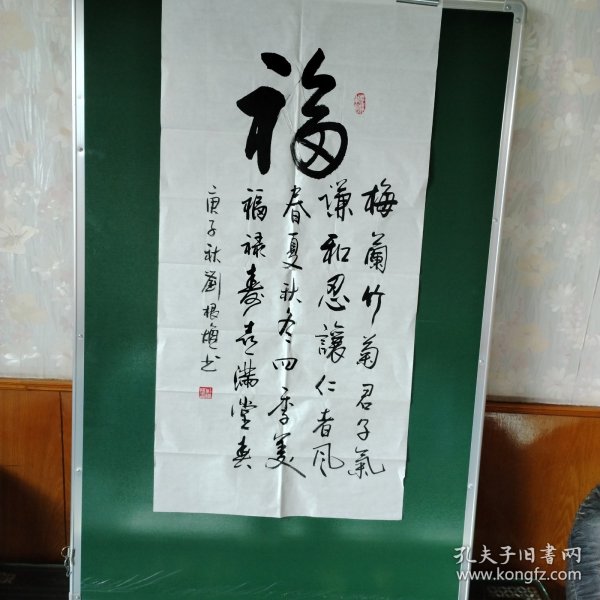 福
梅蘭竹菊君子氣
謙和忍讓仁者風
春夏秋冬四季美
福祿壽喜滿堂春
庚子秋劉根艷书
孔夫子旧書网
www.kongfz.com